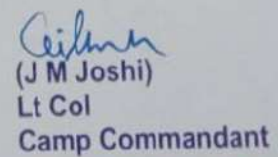 (J M Joshi)
Lt Col
Camp Commandant